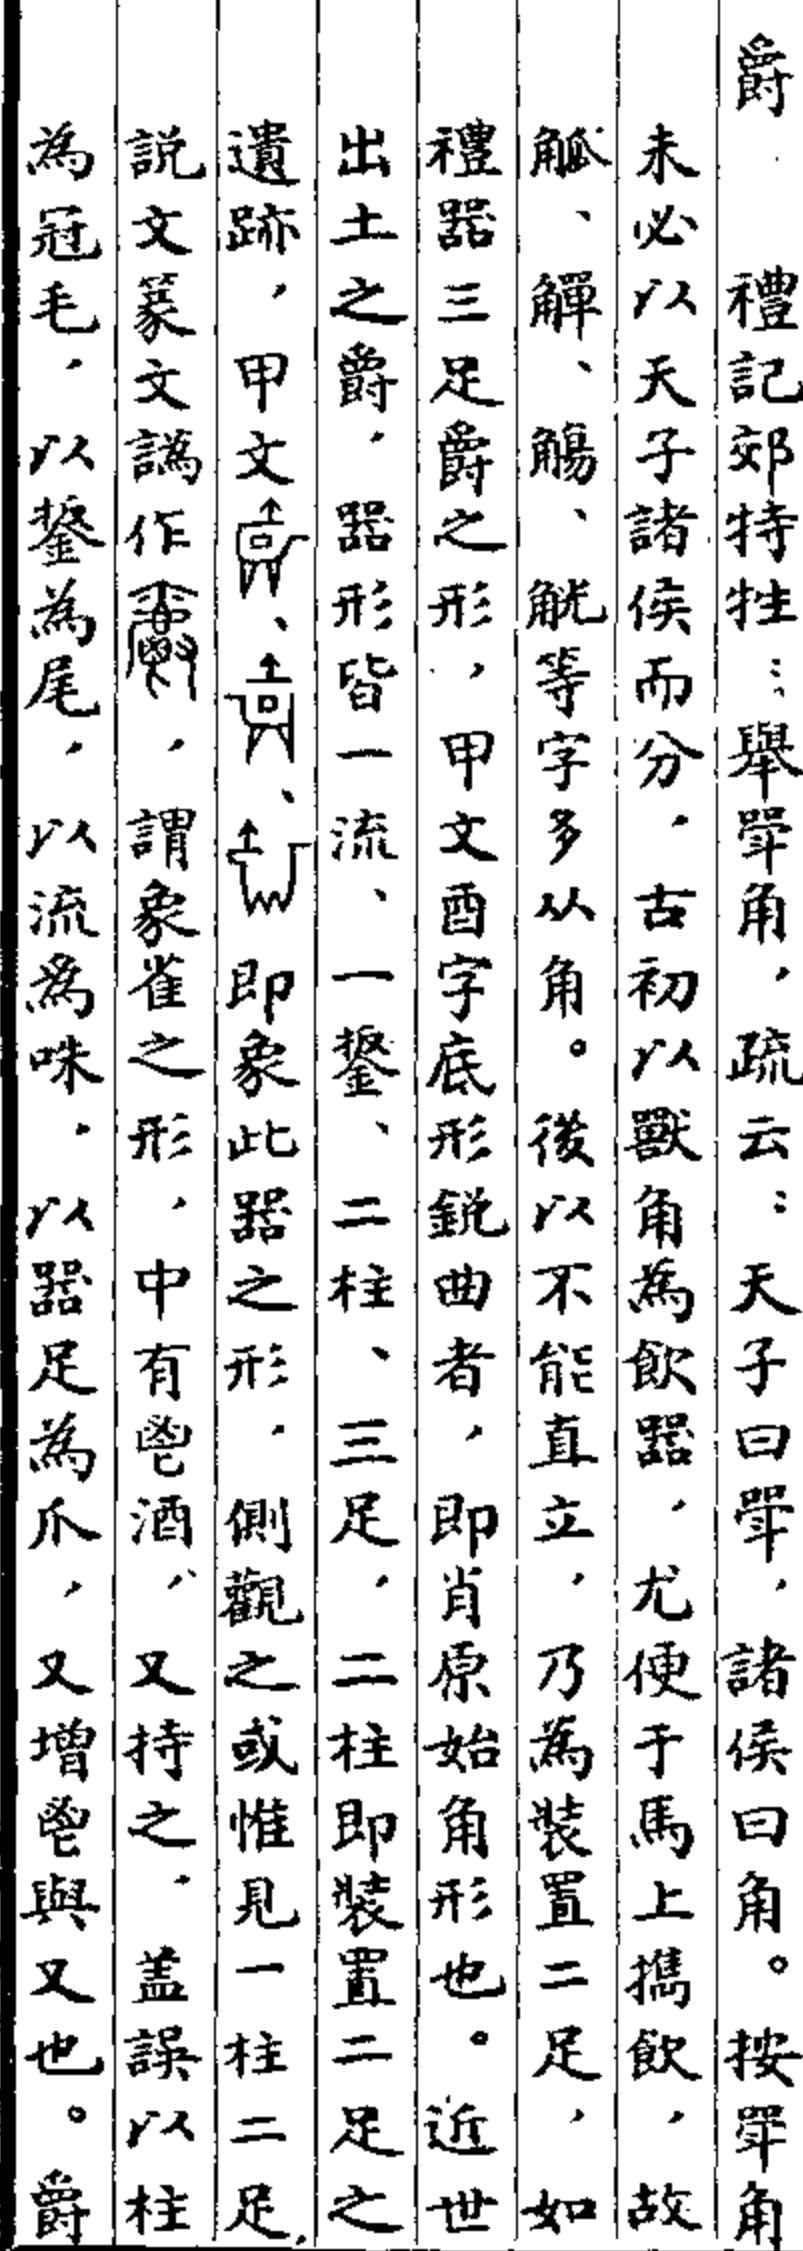 爵　禮記郊特牲：舉斝角，疏云：天子曰斝，諸侯曰角。按斝角
未必以天子諸侯而分，古初以獸角為飲器，尤便于馬上攜飲，故
觚、觶、觴、觥等字多从角。後以不能直立，乃為裝置二足，如
禮器三足爵之形，甲文酉字底形銳曲者，即肖原始角形也。近世
出土之爵，器形皆一流、一鋬、二柱、三足，二柱即裝置二足之
遺跡，甲文、、即象此器之形，側觀之或惟見一柱二足，
説文篆文譌作，謂象雀之形，中有鬯酒，又持之，盖誤以柱
為冠毛，以鋬為尾，以流為咮，以器足為爪，又增鬯與又也。爵